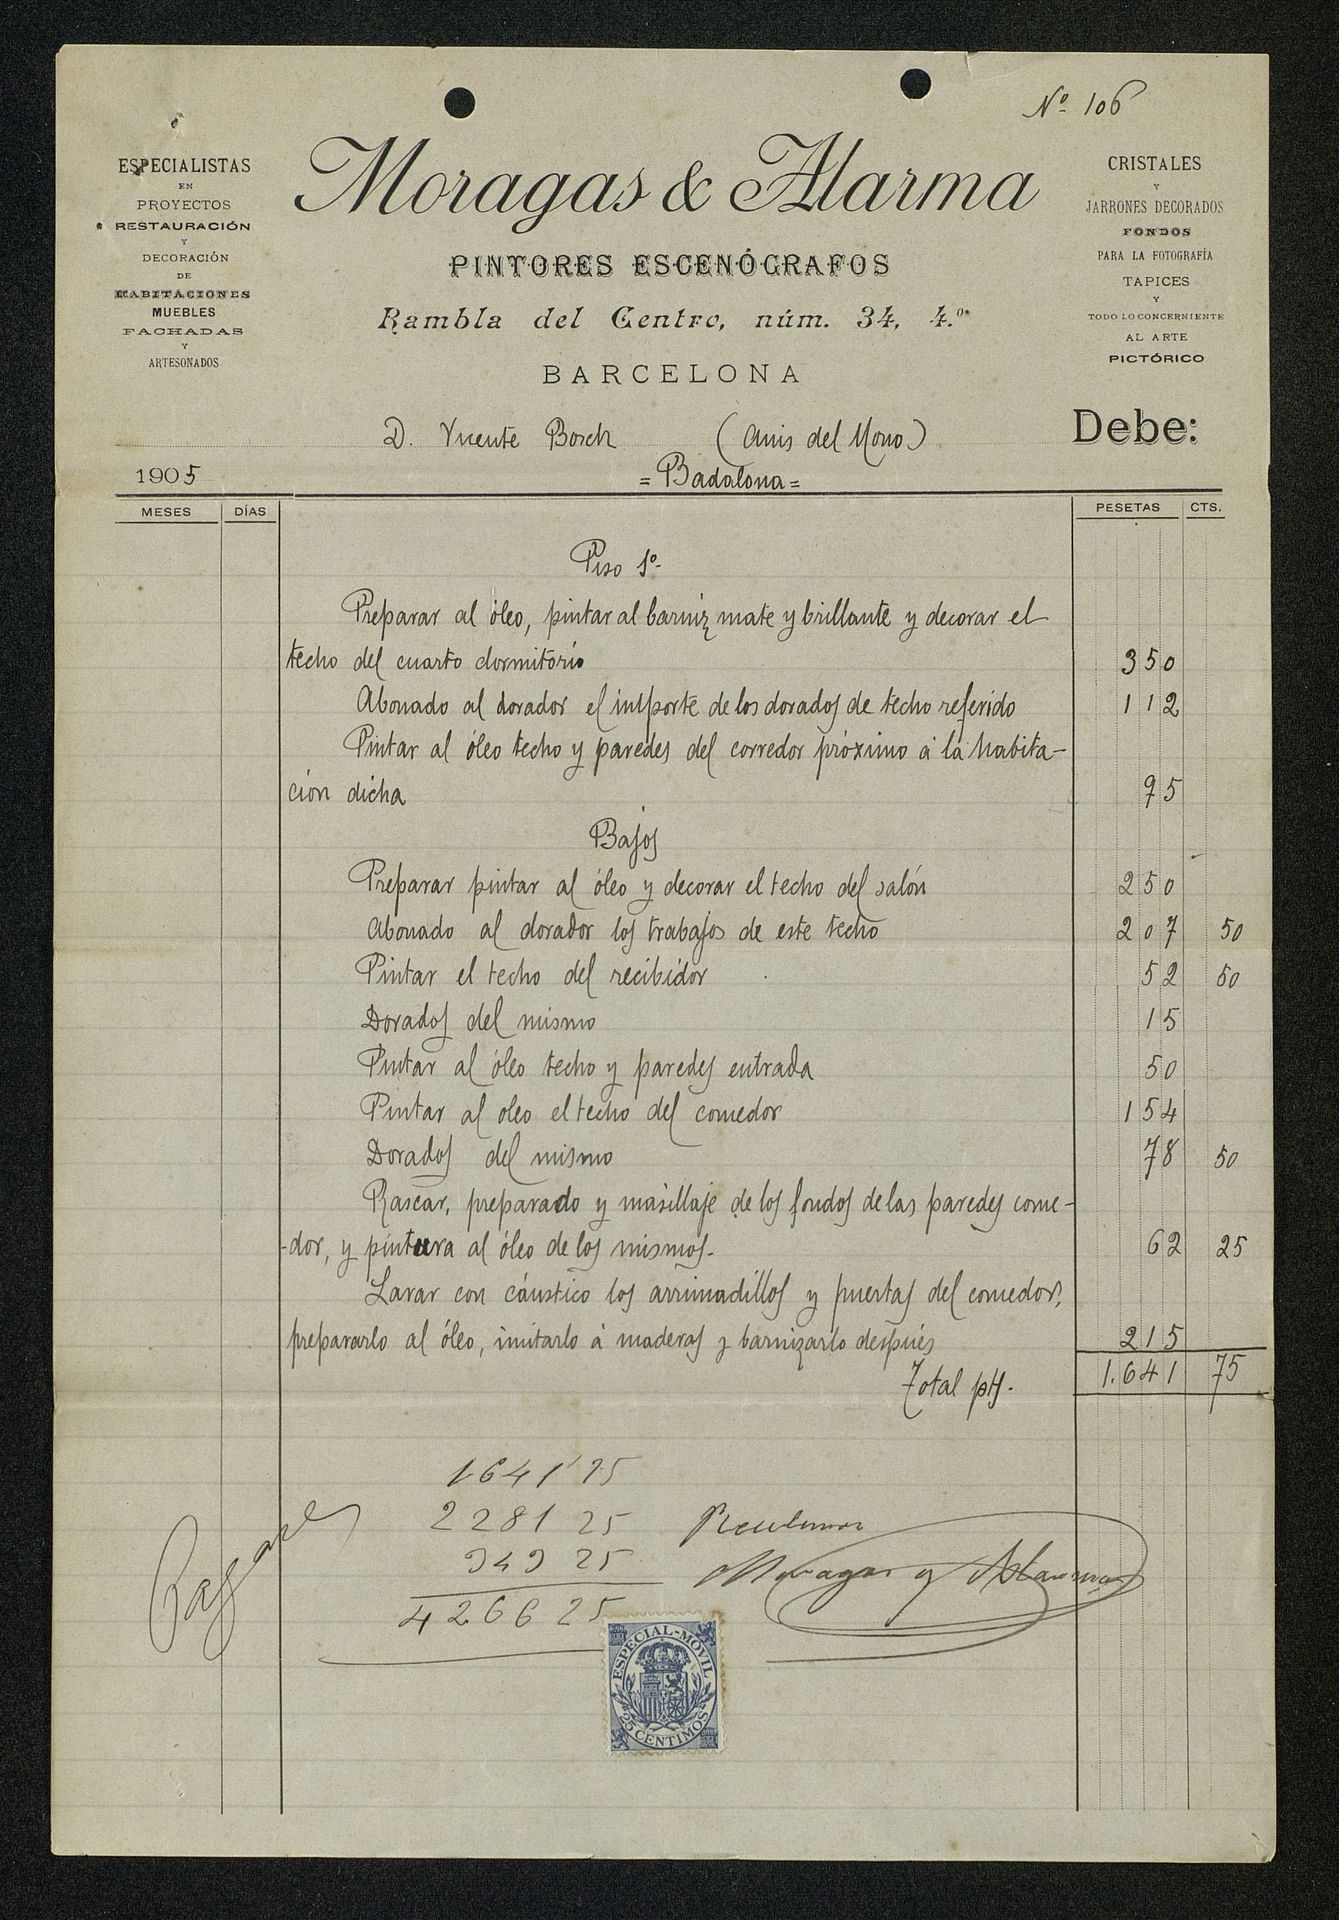 Nº 106
ESPECIALISTAS
EN
PROYECTOS
RESTAURACIÓN
Y
DECORACIÓN
DE
HABITACIONES
MUEBLES
FACHADAS
Y
ARTESONADOS
Moragas & Alarma
PINTORES ESCENÓGRAFOS
Rambla del Centro, núm. 34, 4.º
BARCELONA
CRISTALES
Y
JARRONES DECORADOS
FONDOS
PARA LA FOTOGRAFÍA
TAPICES
Y
TODO LO CONCERNIENTE
AL ARTE
PICTÓRICO
D. Vicente Bosch (Anis del Mono) Debe:
1905 = Badalona =
MESES DÍAS PESETAS CTS.
Piso 1º
Preparar al óleo, pintar al barniz mate y brillante y decorar el
techo del cuarto dormitorio 350
Abonado al dorador el importe de los dorados de techo referido 112
Pintar al óleo techo y paredes del corredor próximo á la habita-
ción dicha 95
Bajos
Preparar pintar al óleo y decorar el techo del salón 250
Abonado al dorador los trabajos de este techo 207 50
Pintar el techo del recibidor 52 50
Dorados del mismo 15
Pintar al óleo techo y paredes entrada 50
Pintar al oleo el techo del comedor 154
Dorados del mismo 78 50
Rascar, preparado y masillaje de los fondos de las paredes come-
-dor, y pintura al óleo de los mismos. 62 25
Lavar con cáustico los arrimadillos y puertas del comedor,
prepararlo al óleo, imitarlo á maderas y barnizarlo después 215
Total pts. 1.641 75
1641'75
2281 25
343 25
4266 25
Pagase
Recibimos
Moragas y Alarma
ESPECIAL-MOVIL
25 CENTIMOS